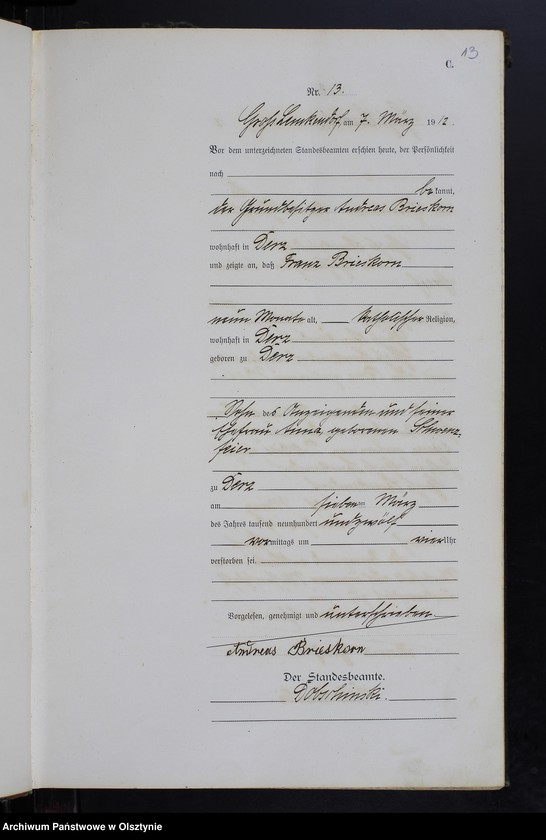 13
C.
Nr. 13.
Groß Lemkendorf am 7. März 1912.
Vor dem unterzeichneten Standesbeamten erschien heute, der Persönlichkeit
nach
bekannt,
der Grundbesitzer Andreas Brieskorn
wohnhaft in Derz
und zeigte an, daß Franz Brieskorn
neun Monate alt, katholischer Religion,
wohnhaft in Derz
geboren zu Derz
Sohn des Anzeigenden und seiner
Ehefrau Anna, geborenen
feier
zu Derz
am siebenten März
des Jahres tausend neunhundert und zwölf
vormittags um vier Uhr
verstorben sei.
Vorgelesen, genehmigt und unterschrieben
Andreas Brieskorn
Der Standesbeamte.
Dobschinski.
Archiwum Państwowe w Olsztynie